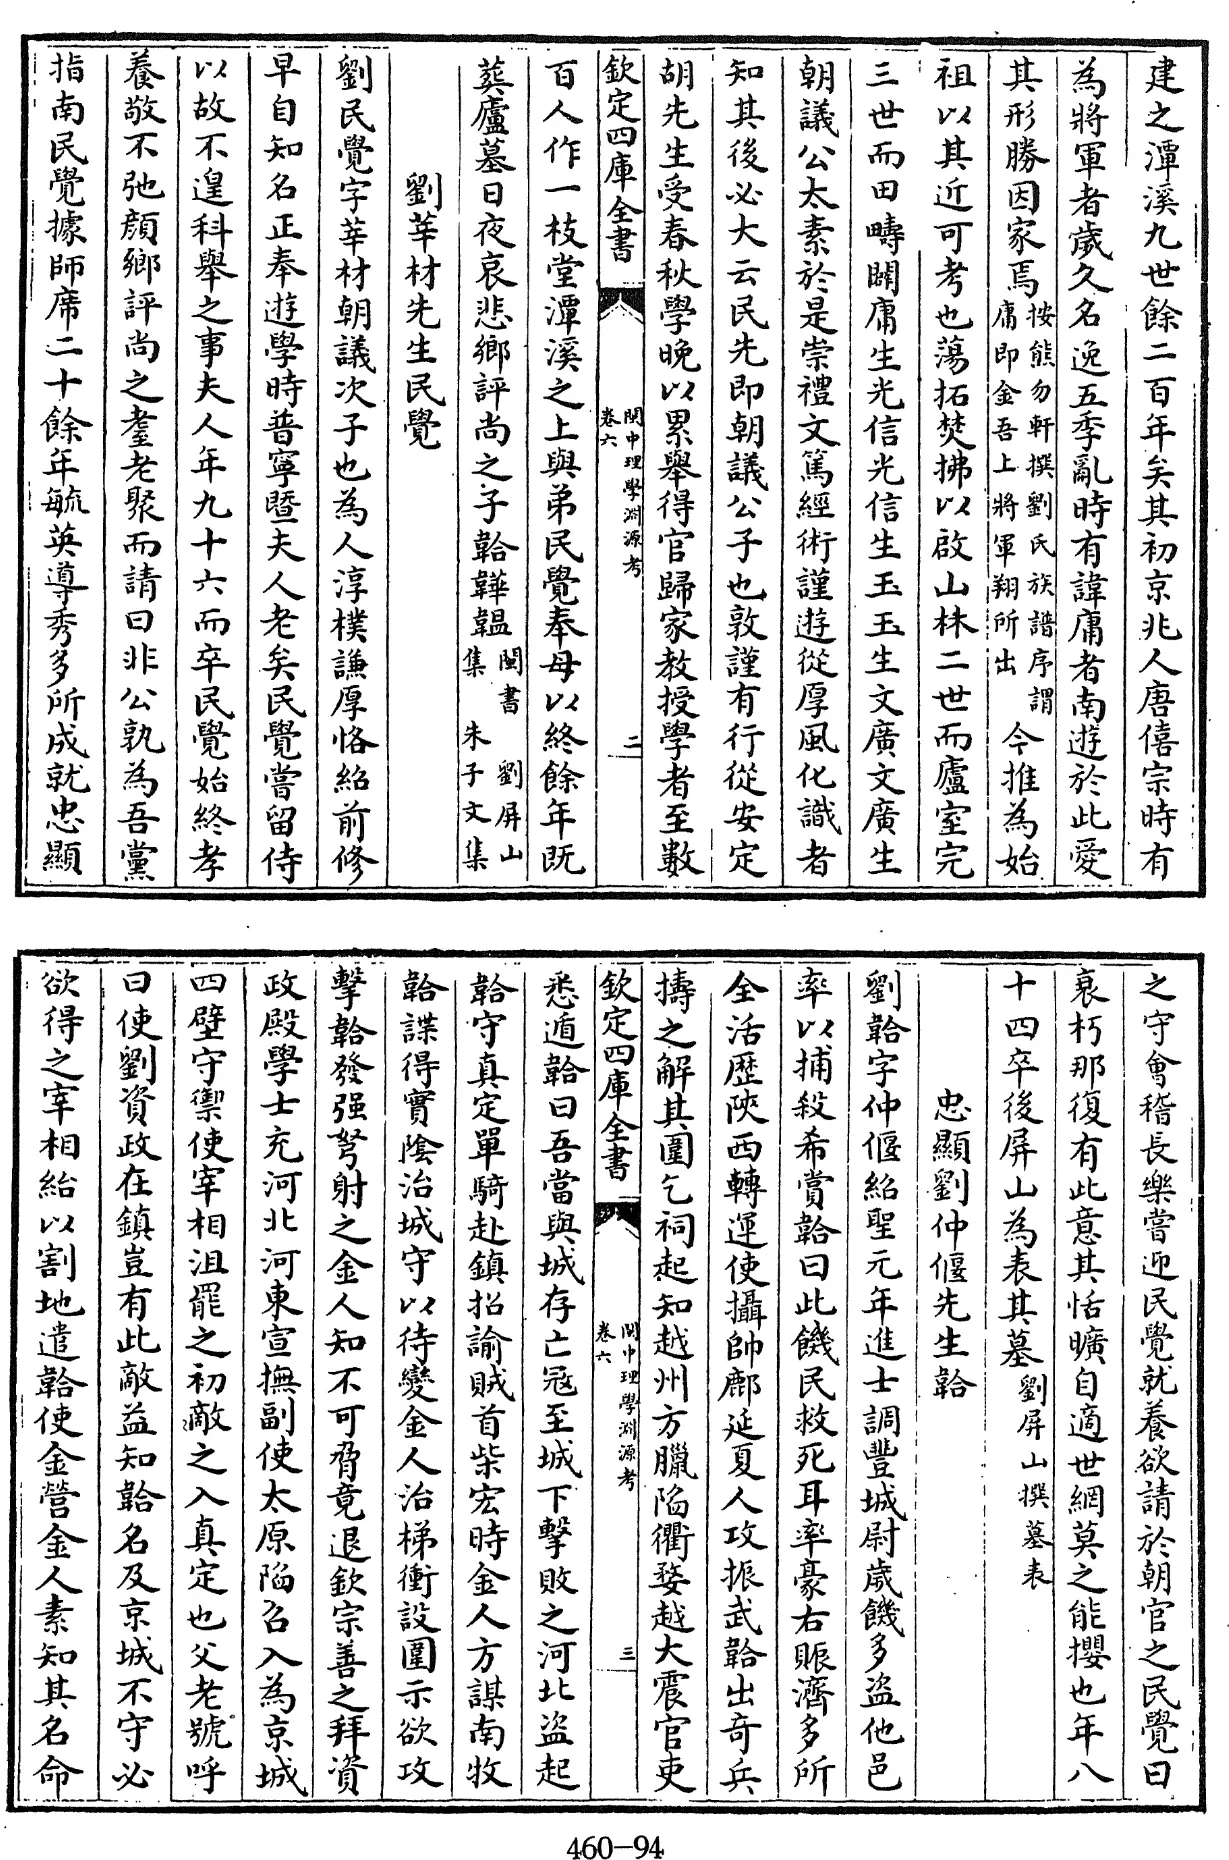 建之潭溪九世餘二百年矣其初京兆人唐僖宗時有
為將軍者歲久名逸五季亂時有諱庸者南遊於此愛
其形勝因家焉按熊勿軒撰劉氏族譜序謂庸即金吾上將軍翔所出今推為始
祖以其近可考也蕩拓焚拂以啟山林二世而廬室完
三世而田疇闢庸生光信光信生玉玉生文廣文廣生
朝議公太素於是崇禮文篤經術謹遊從厚風化識者
知其後必大云民先即朝議公子也敦謹有行從安定
胡先生受春秋學晚以累舉得官歸家教授學者至數
欽定四庫全書
閩中理學淵源考
卷六
二
百人作一枝堂潭溪之上與弟民覺奉母以終餘年既
葬廬墓日夜哀悲鄉評尚之子韐韡韞閩書 劉屏山集 朱子文集
劉莘材先生民覺
劉民覺字莘材朝議次子也為人淳樸謙厚恪紹前修
早自知名正奉遊學時普寧暨夫人老矣民覺嘗留侍
以故不遑科舉之事夫人年九十六而卒民覺始終孝
養敬不弛顏鄉評尚之耋老聚而請曰非公孰為吾黨
指南民覺據師席二十餘年毓英導秀多所成就忠顯
之守會稽長樂嘗迎民覺就養欲請於朝官之民覺曰
衰朽那復有此意其恬曠自適世網莫之能攖也年八
十四卒後屏山為表其墓劉屏山撰墓表
忠顯劉仲偃先生韐
劉韐字仲偃紹聖元年進士調豐城尉歲饑多盗他邑
率以捕殺希賞韐曰此饑民救死耳率豪右賑濟多所
全活歷陜西轉運使攝帥鄜延夏人攻振武韐出奇兵
擣之解其圍乞祠起知越州方臘陷衢婺越大震官吏
欽定四庫全書
閩中理學淵源考
卷六
三
悉遁韐曰吾當與城存亡冦至城下擊敗之河北盗起
韐守真定單騎赴鎮招諭賊首柴宏時金人方謀南牧
韐諜得實陰治城守以待變金人治梯衝設圍示欲攻
擊韐發强弩射之金人知不可脅竟退欽宗善之拜資
政殿學士充河北河東宣撫副使太原陷召入為京城
四壁守禦使宰相沮罷之初敵之入真定也父老號呼
曰使劉資政在鎮豈有此敵益知韐名及京城不守必
欲得之宰相紿以割地遣韐使金營金人素知其名命
460-94